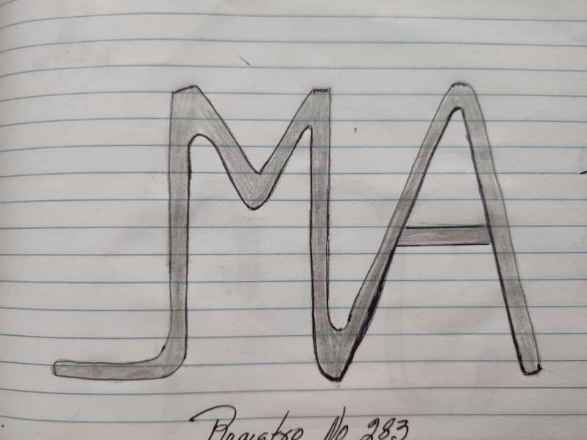 MA
Registro No 283